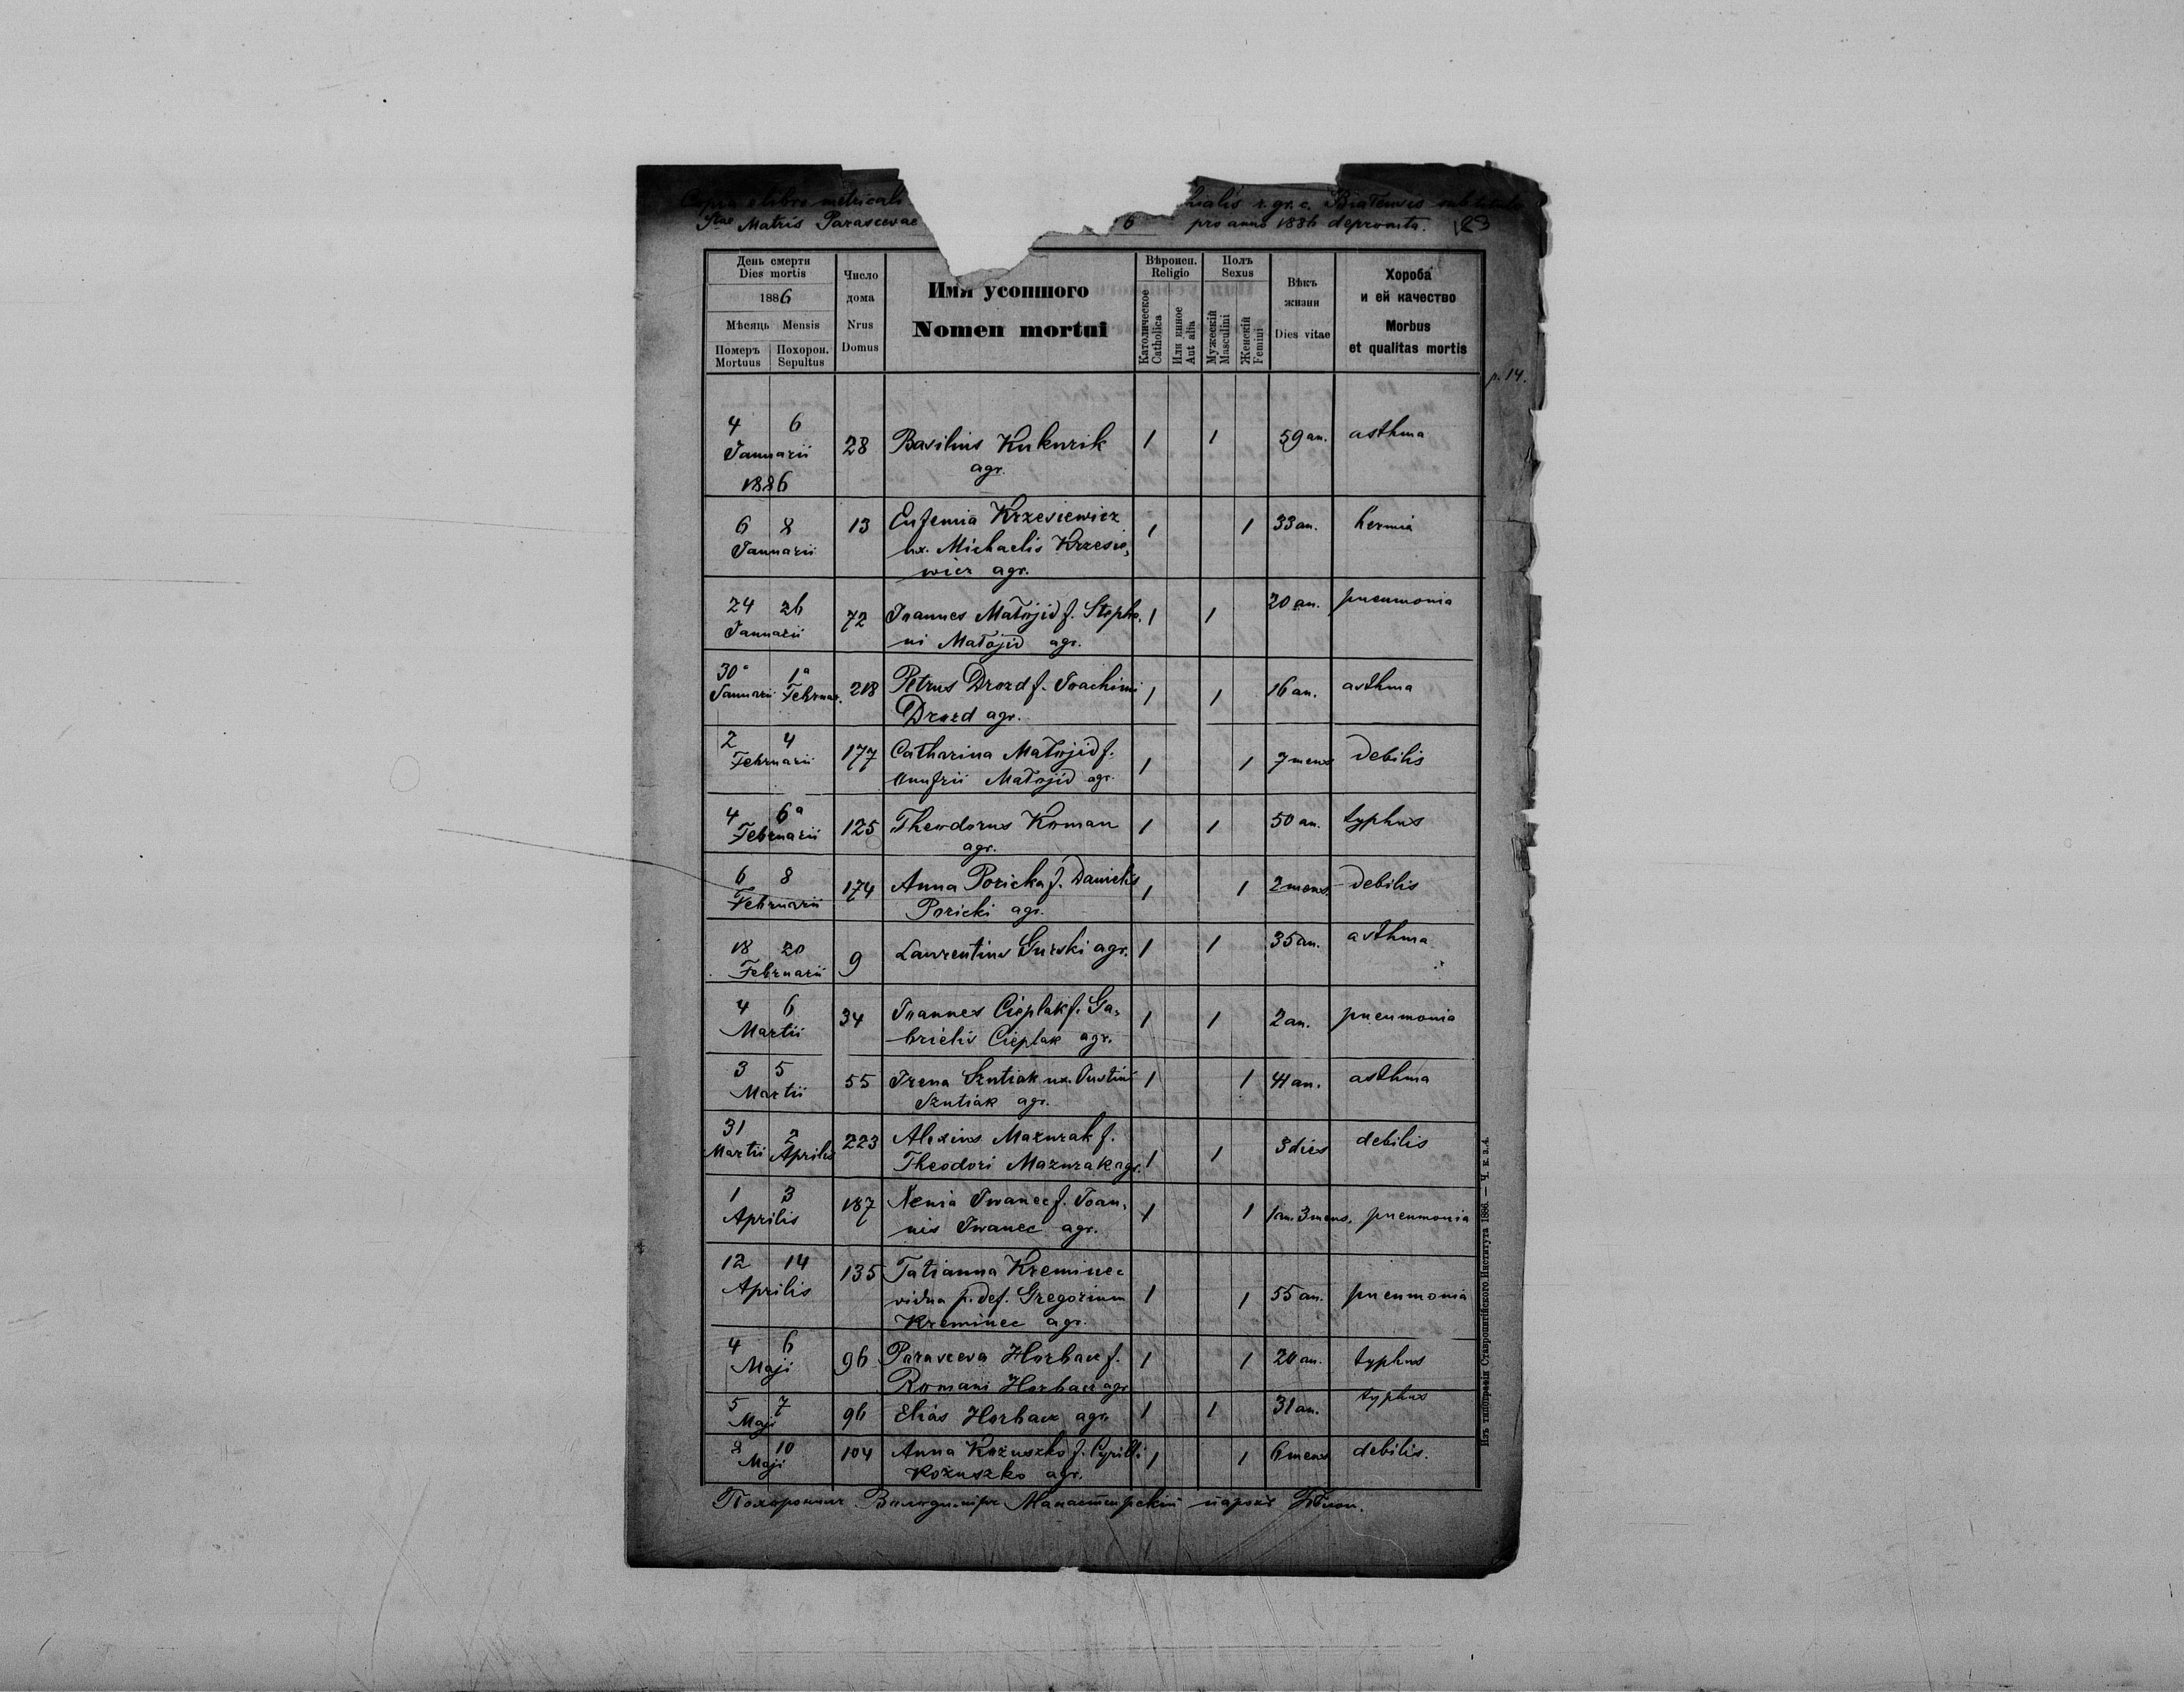 Copia e libro metricali hialis r. gr. c. sub titulo
Stae Matris Parascevae 6 pro anno 1886 deprompta. 23
День смерти
Dies mortis
1886
Мѣсяць Mensis
Померъ Похорон.
Mortuus Sepultus
Число
дома
Nrus
Domus
Имя усопшого
Nomen mortui
Вѣроисп.
Religio
Католическое
Catholica
Или инное
Aut alia
Полъ
Sexus
Мужескій
Masculini
Женскій
Femini
Вѣкъ
жизни
Dies vitae
Хороба
и ей качество
Morbus
et qualitas mortis
p. 14.
4 6
Januarii 28 Basilius Kukurik 1 1 59 an. asthma
agr.
1886
6 8 13 Eufemia Krzesiewicz 1 1 33 an. hernia
Januarii ux. Michaelis Krzesie,
wicz agr.
24 26 72 Joannes Matójid f. Stepha, 1 1 20 an. pneumonia
Januarii ni Matójid agr.
30a 1a 218 Petrus Drozd f. Joachimi 1 1 16 an. asthma
Januarii Februar. Drozd agr.
2 4 177 Catharina Matójid f. 1 1 7 mens debilis
Februarii Onufrii Matójid agr.
4 6a 125 Theodorus Koman 1 1 50 an. typhus
Februarii agr.
6 8 174 Anna Poricka f. Danielis 1 1 2 mens. debilis
Februarii Poricki agr.
18 20 9 Laurentius Gurski agr. 1 1 35 an. asthma
Februarii
4 6 34 Joannes Cieplak f. Ga, 1 1 2 an. pneumonia
Martii brielis Cieplak agr.
3 5 55 Irena Szutiak ux. Justini 1 1 41 an. asthma
Martii Szutiak agr.
31 2 223 Alexius Mazurak f. 1 1 3 dies debilis
Martii Aprilis Theodori Mazurak agr.
1 3 187 Xenia Iwanec f. Joan, 1 1 1 an. 3 mens. pneumonia
Aprilis nis Iwanec agr.
12 14 135 Tatianna Kreminec 1 1 55 an. pneumonia
Aprilis vidua p. def. Gregorium
Kreminec agr.
4 6 96 Parasceva Horbacz f. 1 1 20 an. typhus
Maji Romani Horbacz agr
5 7 96 Elias Horbacz agr. 1 1 31 an. typhus
Maji
8 10 104 Anna Kożuszko f. Cyrilli 1 1 6 mens debilis.
Maji Kożuszko agr.
Манастирскій парохъ
Изъ типографіи Ставропигійского Института 1886. — Ч. к. з. 4.